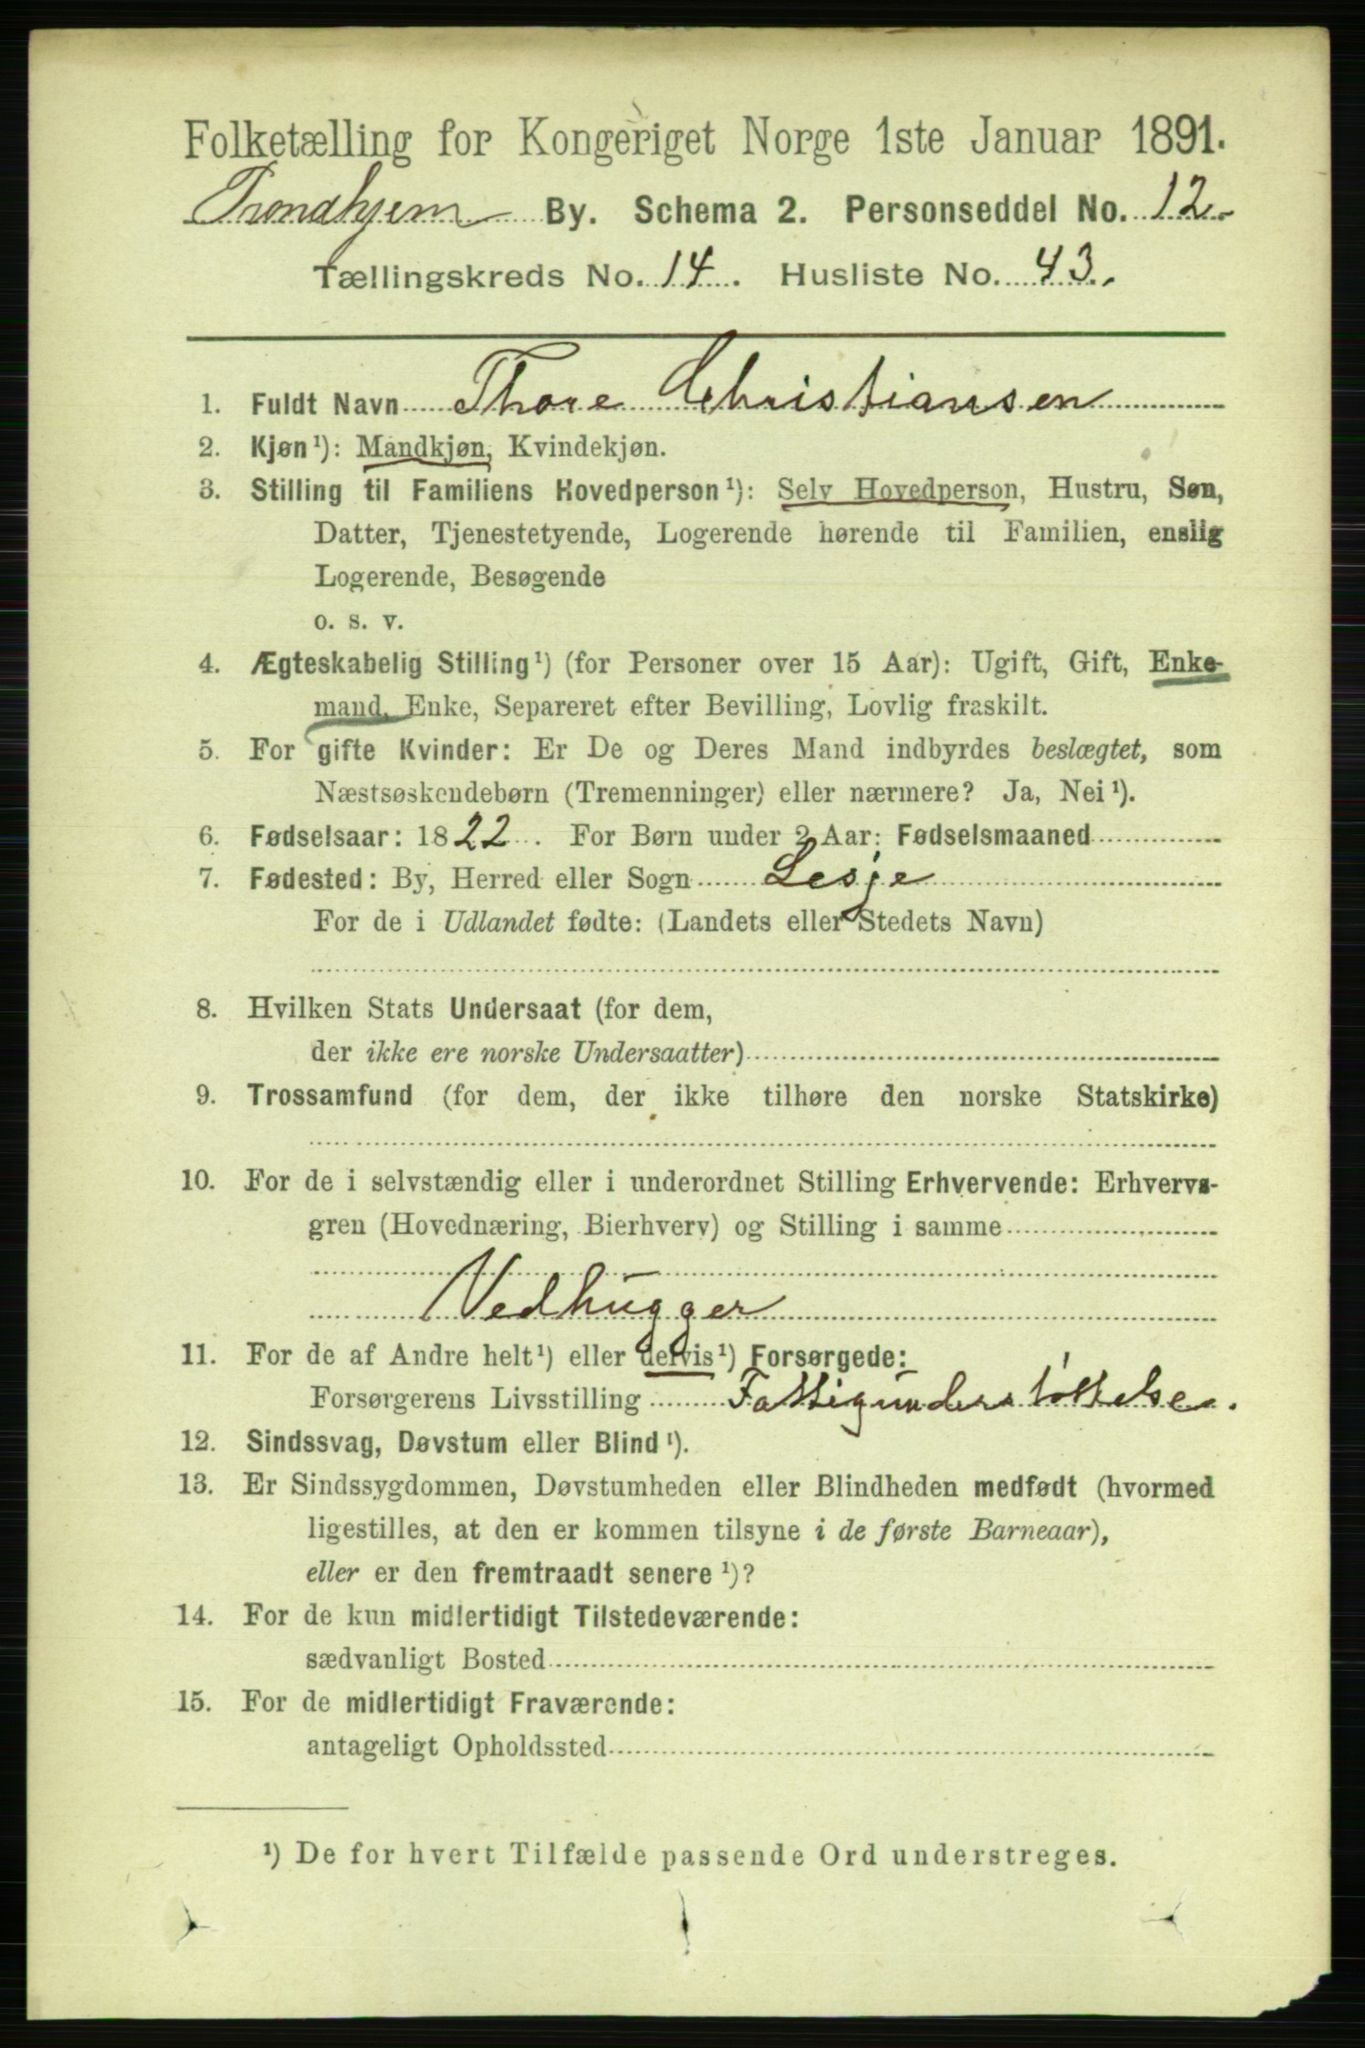 Folketælling for Kongeriget Norge 1ste Januar 1891.
Trondhjem By. Schema 2. Personseddel No. 12.
Tællingskreds No. 14. Husliste No. 43.
1. Fuldt Navn Thore Christiansen
2. Kjøn¹): Mandkjøn, Kvindekjøn.
3. Stilling til Familiens Hovedperson¹): Selv Hovedperson, Hustru, Søn,
Datter, Tjenestetyende, Logerende hørende til Familien, enslig
Logerende, Besøgende
o. s. v.
4. Ægteskabelig Stilling¹) (for Personer over 15 Aar): Ugift, Gift, Enke-
mand, Enke, Separeret efter Bevilling, Lovlig fraskilt.
5. For gifte Kvinder: Er De og Deres Mand indbyrdes beslægtet, som
Næstsøskendebørn (Tremenninger) eller nærmere? Ja, Nei¹).
6. Fødselsaar: 1822. For Børn under 2 Aar: Fødselsmaaned
7. Fødested: By, Herred eller Sogn Lesje
For de i Udlandet fødte: (Landets eller Stedets Navn)
8. Hvilken Stats Undersaat (for dem,
der ikke ere norske Undersaatter)
9. Trossamfund (for dem, der ikke tilhøre den norske Statskirke)
10. For de i selvstændig eller i underordnet Stilling Erhvervende: Erhvervs-
gren (Hovednæring, Bierhverv) og Stilling i samme
Vedhugger
11. For de af Andre helt¹) eller delvis¹) Forsørgede:
Forsørgerens Livsstilling Fattigunderstøttelse.
12. Sindssvag, Døvstum eller Blind¹).
13. Er Sindssygdommen, Døvstumheden eller Blindheden medfødt (hvormed
ligestilles, at den er kommen tilsyne i de første Barneaar),
eller er den fremtraadt senere¹)?
14. For de kun midlertidigt Tilstedeværende:
sædvanligt Bosted
15. For de midlertidigt Fraværende:
antageligt Opholdssted
¹) De for hvert Tilfælde passende Ord understreges.